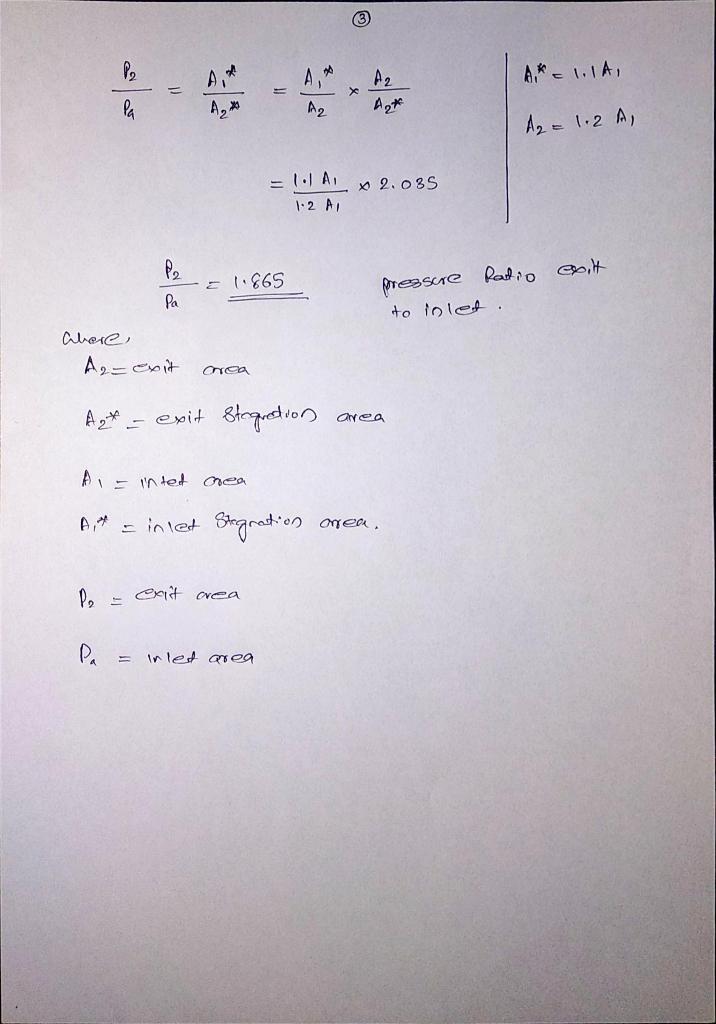 ③
P₂/Pa = A₁*/A₂* = A₁*/A₂ × A₂/A₂*
A₁* = 1.1 A₁
A₂ = 1.2 A₁
= 1.1 A₁/1.2 A₁ × 2.035
P₂/Pa = 1.865 pressure Ratio exit
to inlet.
where,
A₂ = exit area
A₂* = exit Stagnation area
A₁ = inlet area
A₁* = inlet Stagnation area.
P₂ = exit area
Pa = inlet area